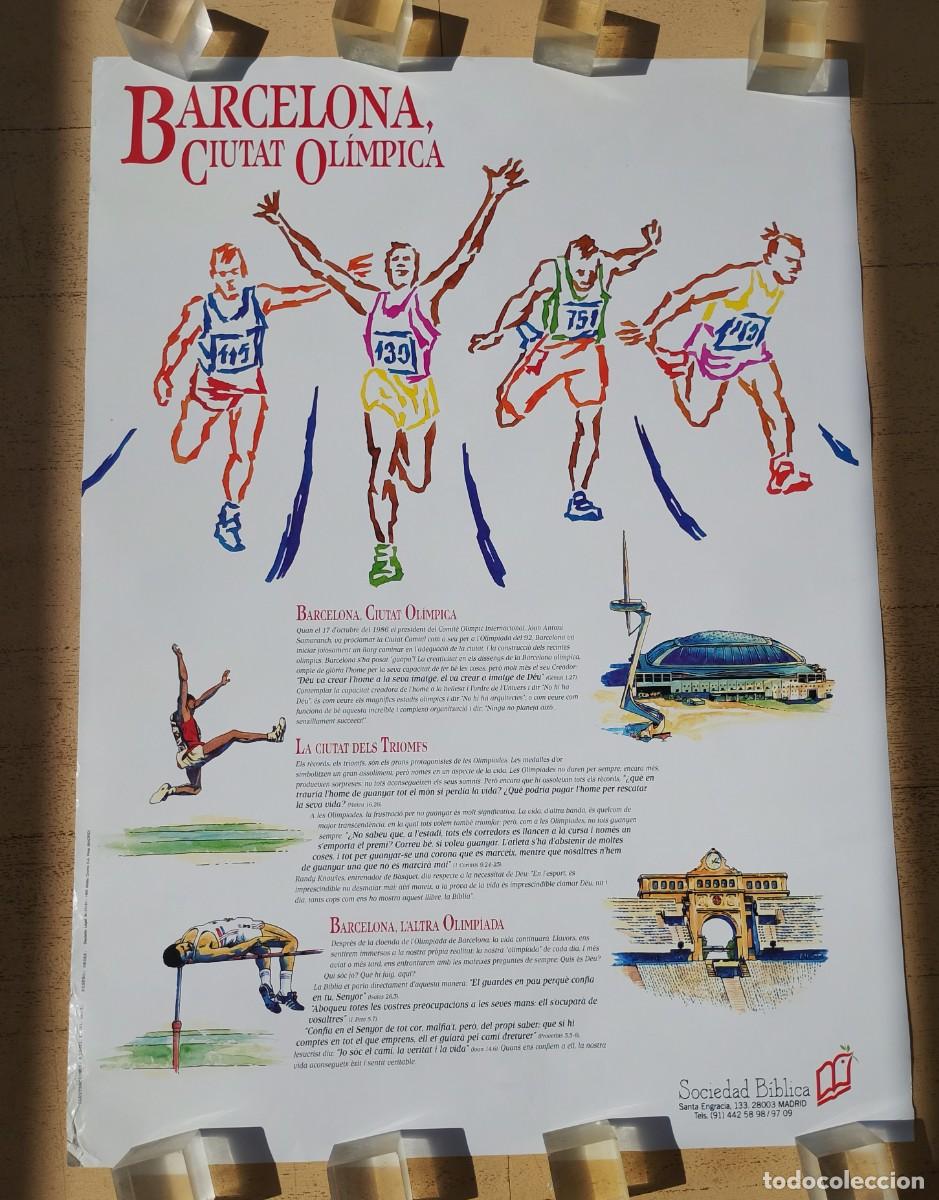 BARCELONA,
CIUTAT OLÍMPICA
115
139
751
BARCELONA, CIUTAT OLÍMPICA
Quan el 17 d'octubre del 1986 el president del Comitè Olímpic Internacional, Joan Antoni
Samaranch, va proclamar la Ciutat Comtal com a seu per a l'Olimpíada del 92, Barcelona va
iniciar joiosament un llarg caminar en l'adequació de la ciutat, i la construcció dels recintes
olímpics. Barcelona s'ha posat "guapa"! La creativitat en els dissenys de la Barcelona olímpica,
omple de glòria l'home per la seva capacitat de fer bé les coses, però molt més el seu Creador:
"Déu va crear l'home a la seva imatge, el va crear a imatge de Déu" (Gènesi 1.27)
Contemplar la capacitat creadora de l'home o la bellesa i l'ordre de l'Univers i dir "No hi ha
Déu", és com veure els magnífics estadis olímpics i dir "No hi ha arquitectes"; o com veure com
funciona de bé aquesta increïble i complexa organització i dir: "Ningú no planejà això,
senzillament succeeix!".
LA CIUTAT DELS TRIOMFS
Els rècords, els triomfs, són els grans protagonistes de les Olimpíades. Les medalles d'or
simbolitzen un gran assoliment, però només en un aspecte de la vida. Les Olimpíades no duren per sempre; encara més,
produeixen sorpreses: no tots aconsegueixen els seus somnis. Però encara que hi assoleixin tots els rècords, "¿què en
trauria l'home de guanyar tot el món si perdia la vida? ¿Què podria pagar l'home per rescatar
la seva vida? (Mateu 16.26)
A les Olimpíades, la frustració per no guanyar és molt significativa. La vida, d'altra banda, és quelcom de
major transcendència, en la qual tots volem també triomfar; però, com a les Olimpíades, no tots guanyen
sempre. "¿No sabeu que, a l'estadi, tots els corredors es llancen a la cursa i només un
s'emporta el premi? Correu bé, si voleu guanyar. L'atleta s'ha d'abstenir de moltes
coses, i tot per guanyar-se una corona que es marceix, mentre que nosaltres n'hem
de guanyar una que no es marcirà mai" (1 Corintis 9.24-25).
Randy Knowles, entrenador de Bàsquet, diu respecte a la necessitat de Déu: "En l'esport, és
imprescindible no desmaiar mai; així mateix, a la prova de la vida és imprescindible clamar Déu, nit i
dia, tants cops com ens ho mostra aquest llibre, la Bíblia".
BARCELONA, L'ALTRA OLIMPÍADA
Després de la cloenda de l'Olimpíada de Barcelona, la vida continuarà. Llavors, ens
sentirem immersos a la nostra pròpia realitat: la nostra "olimpíada" de cada dia. I més
aviat o més tard, ens enfrontarem amb les mateixes preguntes de sempre. Quis és Déu?
Qui sóc jo? Què hi faig, aquí?
La Bíblia et parla directament d'aquesta manera: "El guardes en pau perquè confia
en tu, Senyor" (Isaïas 26.3)
"Aboqueu totes les vostres preocupacions a les seves mans: ell s'ocuparà de
vosaltres" (1 Pere 5.7)
"Confia en el Senyor de tot cor, malfia't, però, del propi saber; que si hi
comptes en tot el que emprens, ell et guiarà pel camí dreturer" (Proverbis 3.5-6).
Jesucrist diu: "Jo sóc el camí, la veritat i la vida" (Joan 14.6). Quans ens confiem a ell, la nostra
vida aconsegueix èxit i sentit veritable.
Sociedad Bíblica
Santa Engracia, 133. 28003 MADRID
Tels. (91) 442 58 98 / 97 09
todocoleccion